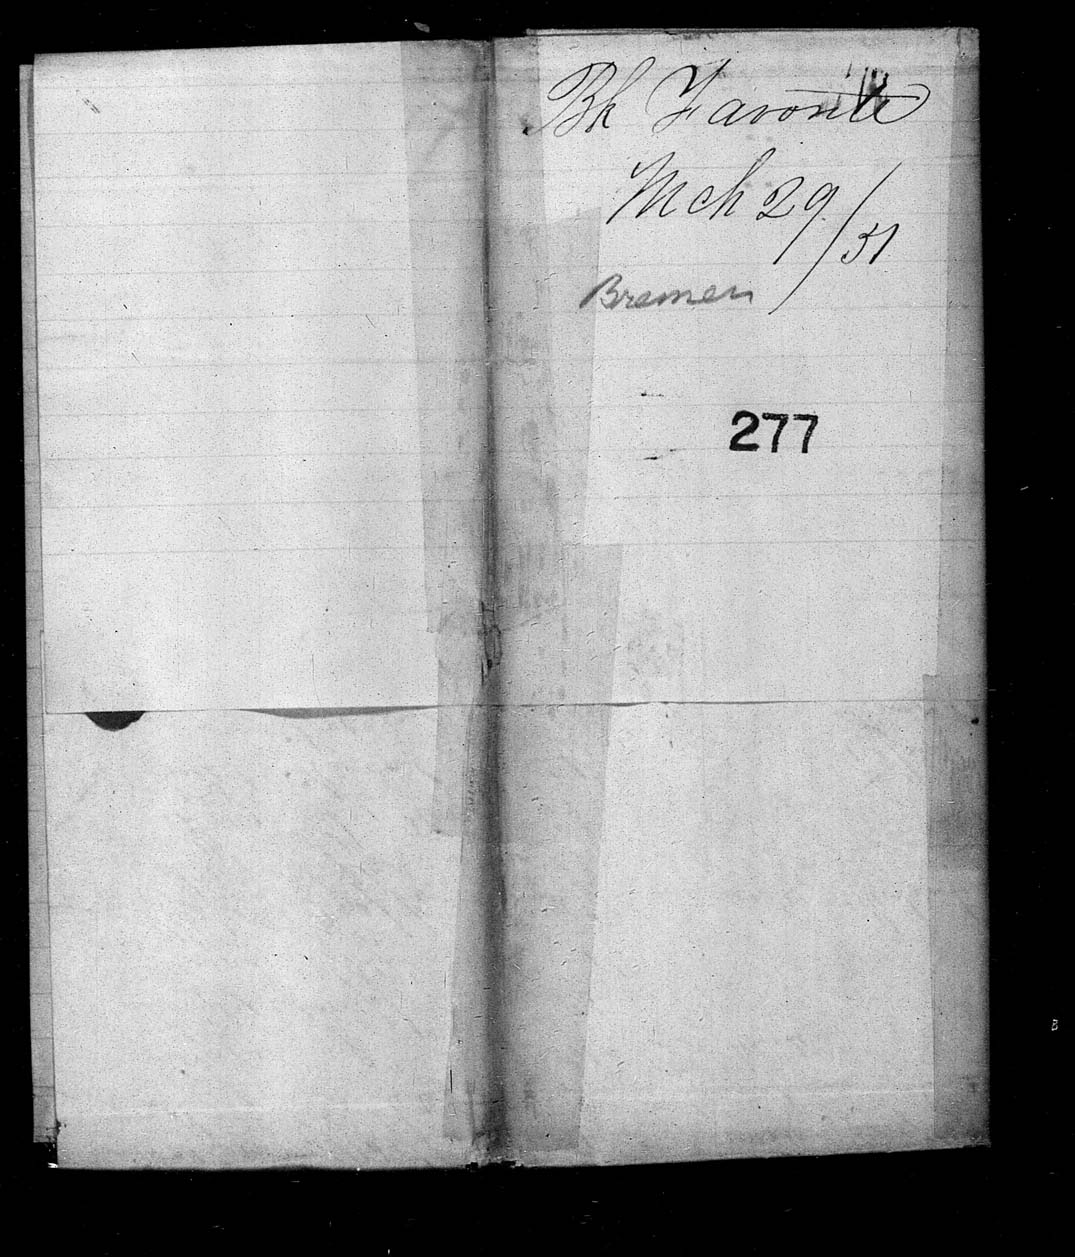 Bk Favorite
Mch 29/51
Bremen
277